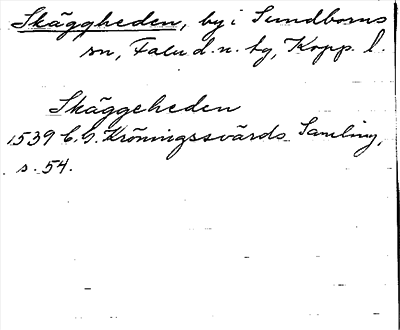 Skäggheden, by i Sundborns
sn, Falu d. n. tg, Kopp. l.
Skäggeheden
1539 C. G. Kröningssvärds Samling,
s. 54.